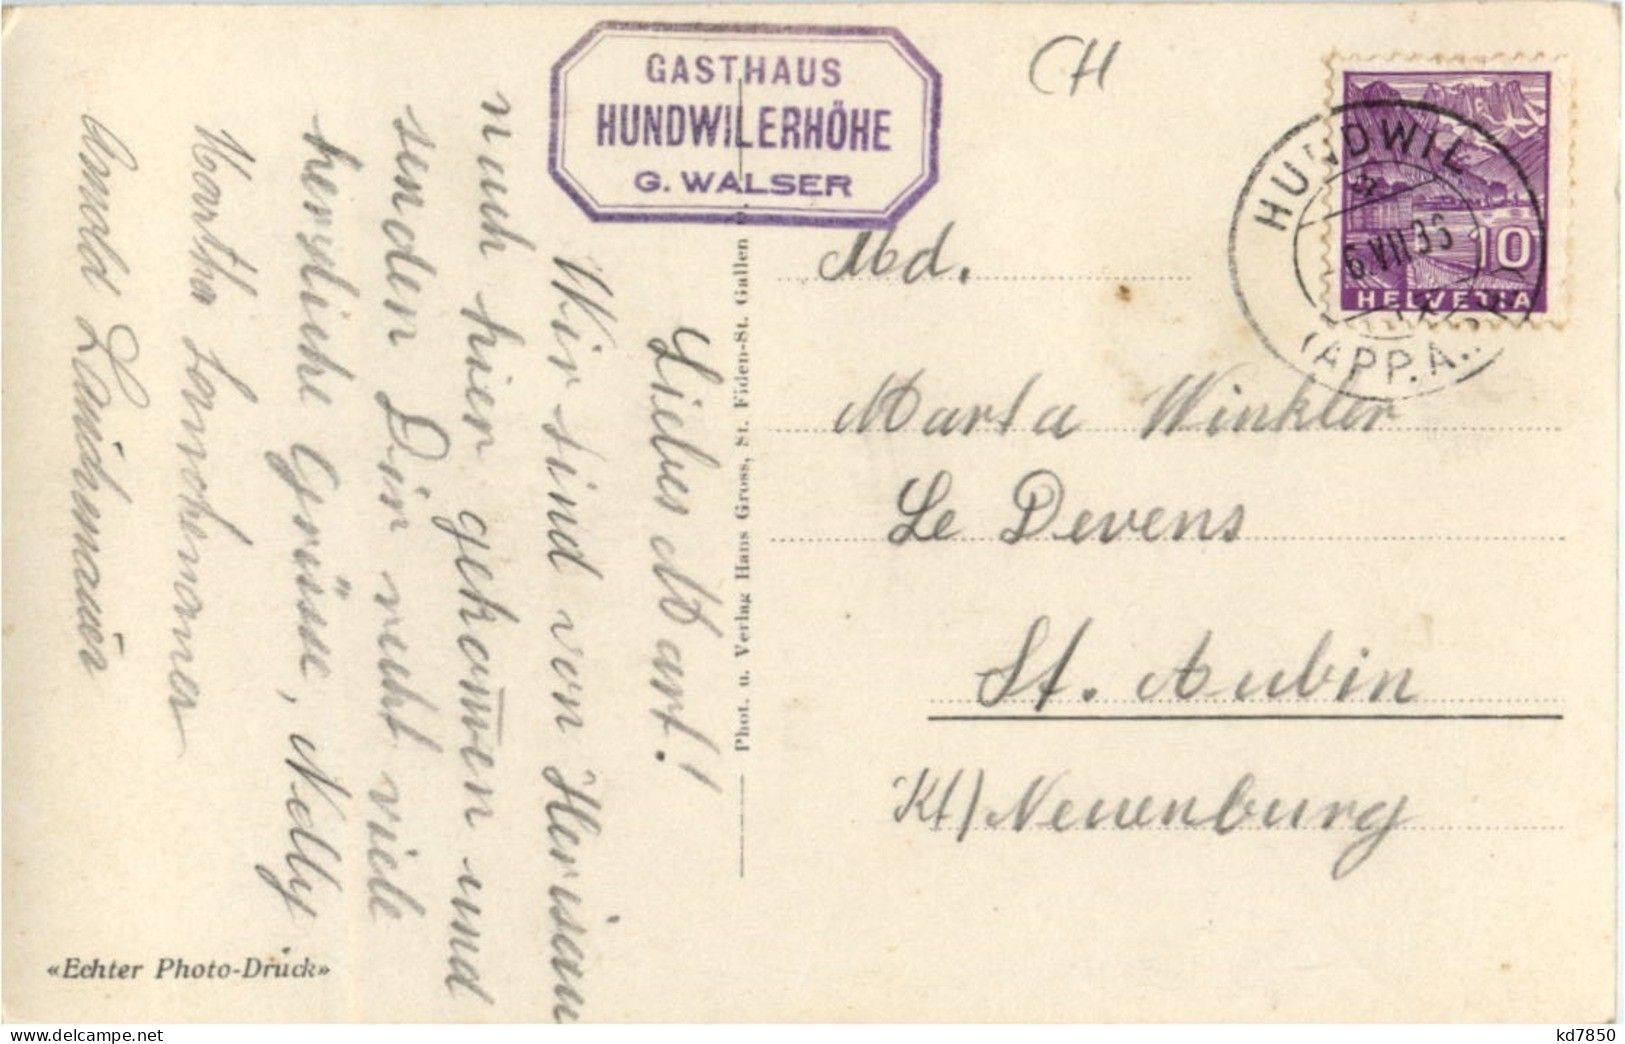 GASTHAUS
HUNDWILERHÖHE
G. WALSER
CH
HUNDWIL
6.VII.36
(APP.A.
10
HELVETIA
Md.
Marta Winkler
Le Devens
St. Aubin
Kt) Neuenburg
Phot. u. Verlag Hans Gross, St. Fiden-St. Gallen
Liebes Mart!
Wir sind von Herisau
nach hier gekom̄en und
senden Dir recht viele
herzliche Grüsse, Nelly
Martha
Arnold
«Echter Photo-Druck»
kd7850